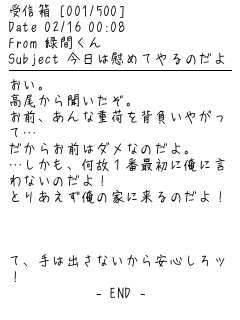 受信箱 [001/500]
Date 02/16 00:08
From 緑間くん
Subject 今日は慰めてやるのだよ
おい。
高尾から聞いたぞ。
お前、あんな重荷を背負いやがっ
て…
だからお前はダメなのだよ。
…しかも、何故１番最初に俺に言
わないのだよ！
とりあえず俺の家に来るのだよ！
て、手は出さないから安心しろッ
！
- END -